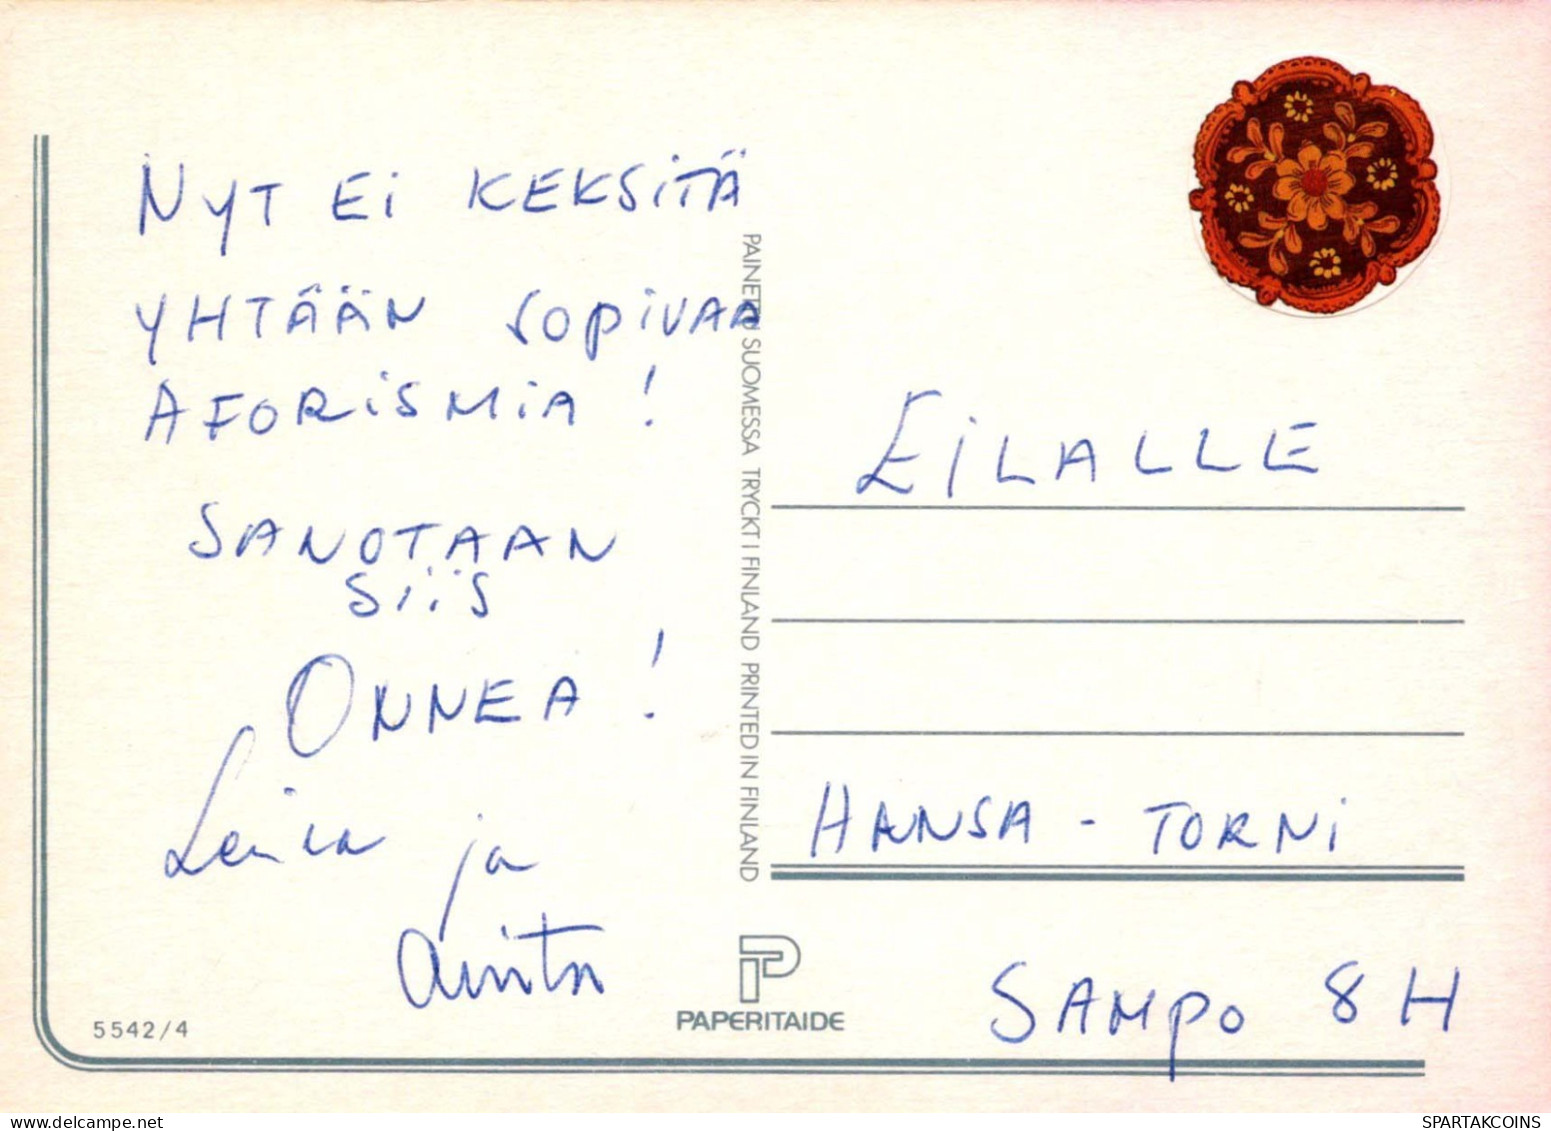 NYT Ei KEKSiTÄ
YHTÄÄN SOPiVAA
AFORiSMiA !
SANOTAAN
SiiS
ONNEA !
Leila ja
EiLALLE
HANSA - TORNi
SAMPO 8 H
PAINETTU SUOMESSA TRYCKT I FINLAND PRINTED IN FINLAND
PAPERITAIDE
5542/4
SPARTAKCOINS